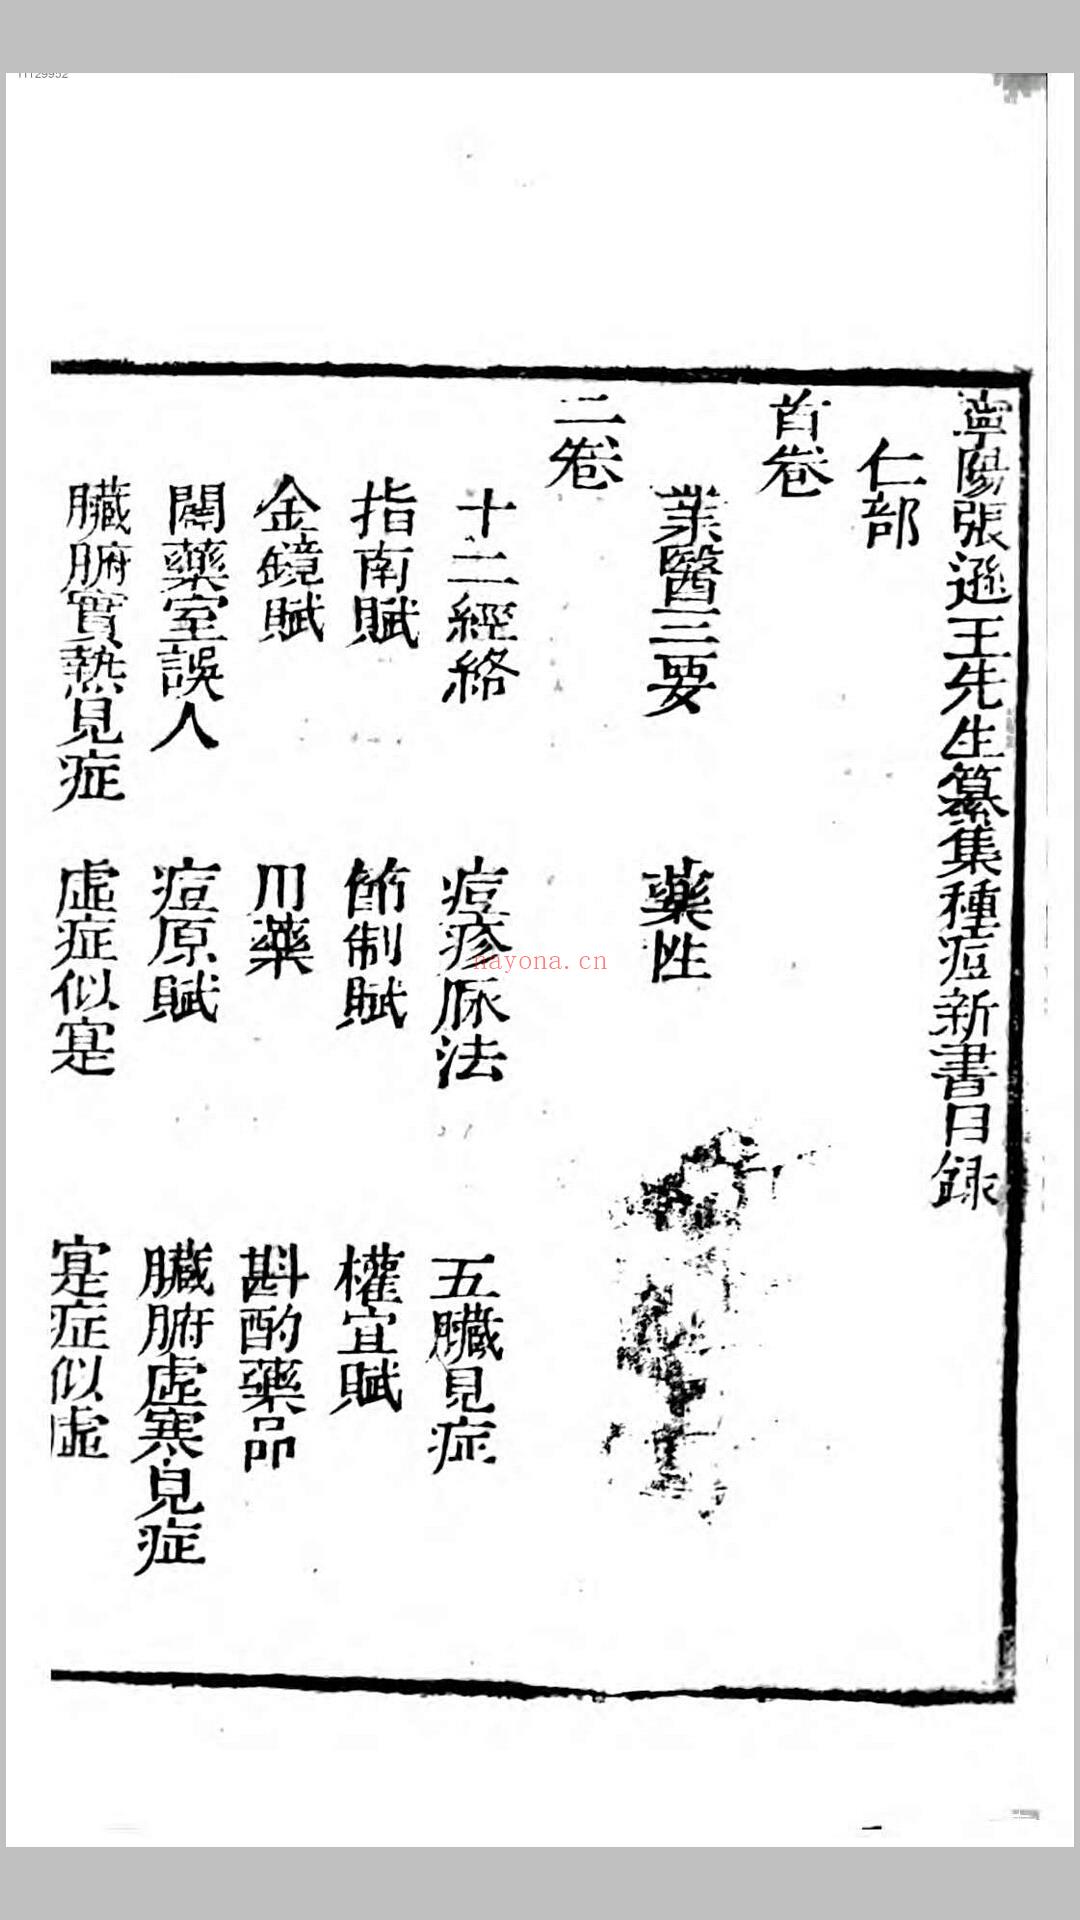 寧陽張遜王先生纂集種痘新書目录
仁部
首卷
業醫三要 藥性
二卷
十二經絡 痘疹脉法 五臟見症
指南賦 節制賦 權宜賦
金鏡賦 用藥 斟酌藥品
閙藥室誤人 痘原賦 臟腑虛寒見症
臟腑實熱見症 虛症似寔 寔症似虛
nayona.cn
11129952